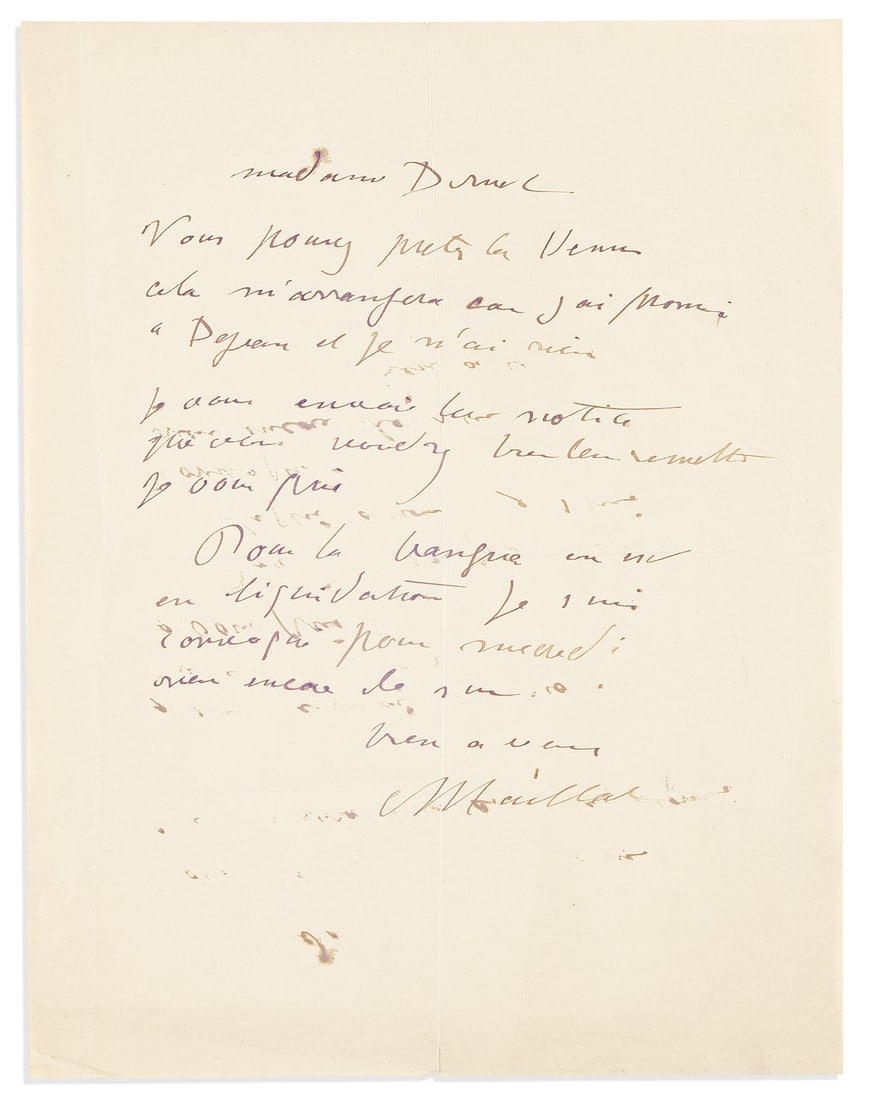 madame Druet
Vous pouvez preter la Venus
cela m'arrangera car j'ai promi
a Dejean et je n'ai rien
je vous envoie la notice
que vous voudrez bien leur remettre
je vous prie
Pour la banque on est
en liquidation je suis
convoqué pour mecredi
rien encore de sur
bien a vous
Maillol